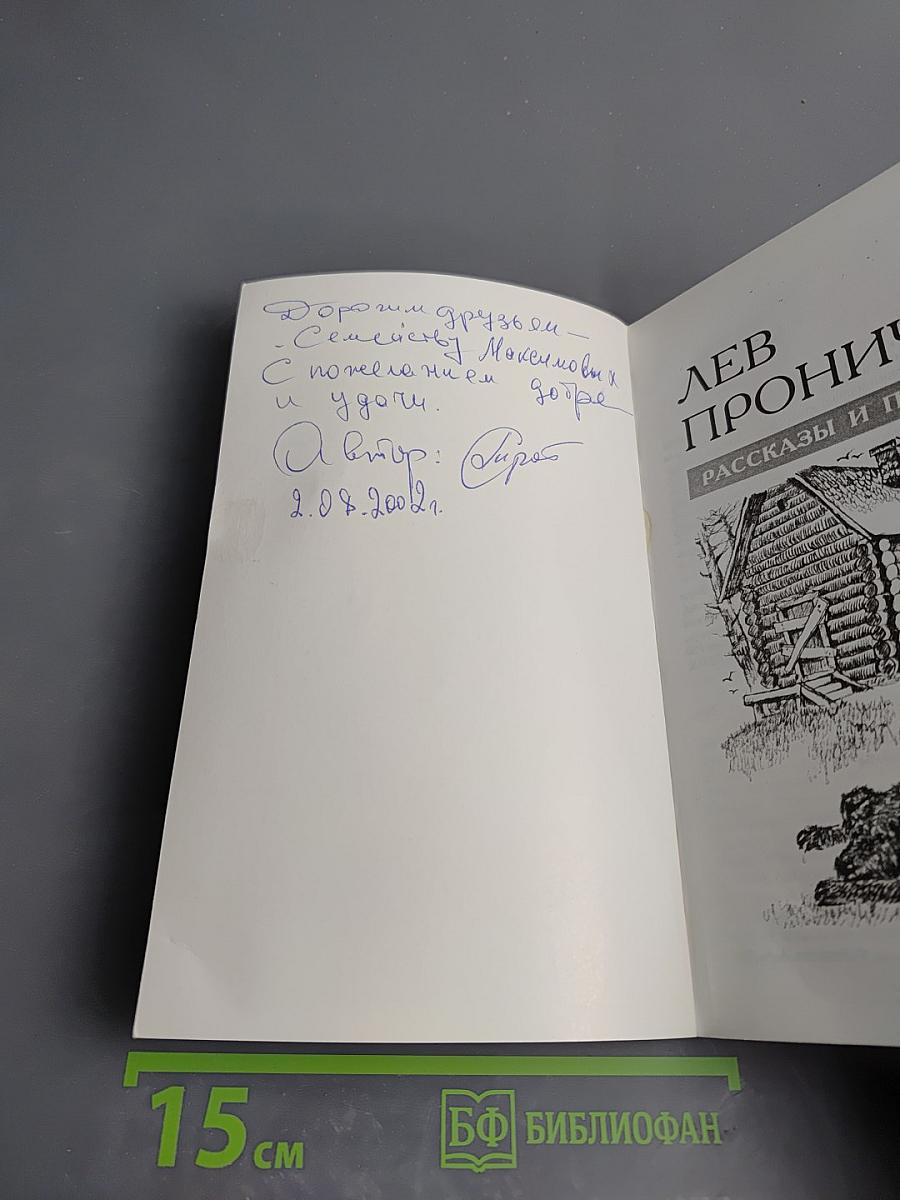 Дорогим друзьям –
- Семейству Максимовых
С пожеланием добра
и удачи.
Автор:
2.08.2002г.
ЛЕВ
ПРОНИЧ
РАССКАЗЫ И П
15 см
БФ БИБЛИОФАН